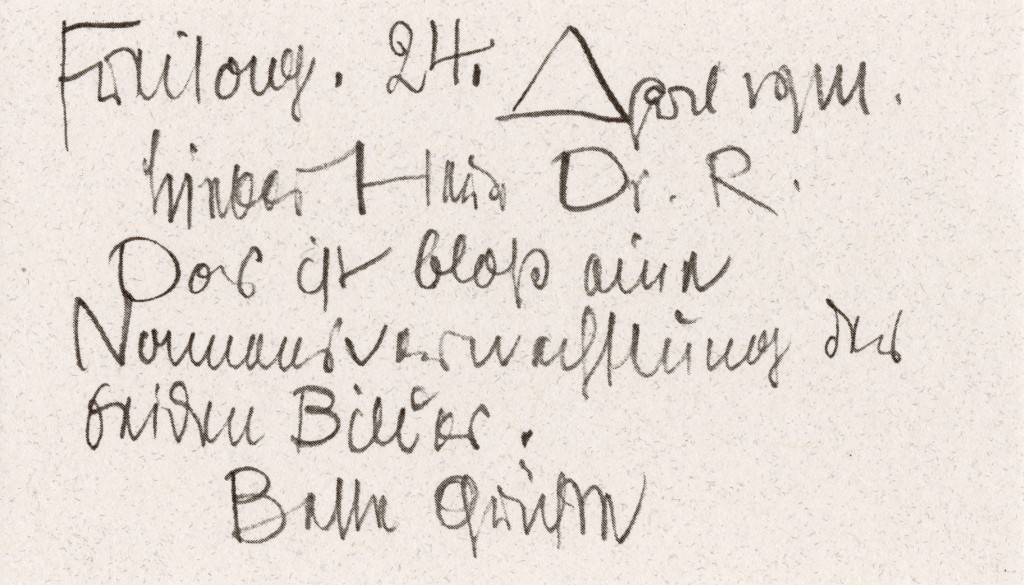 Freitag. 24. April 1911.
Lieber Herr Dr. R.
Das ist bloß eine
Namensverwechslung der
beiden Bilder.
Beste Grüße